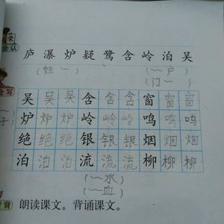 庐瀑炉疑鹭含岭泊吴
(姓一) (一户
(门一)
吴吴吴含含含窗窗窗
炉炉炉岭岭岭鸣鸣鸣
绝绝绝银银银烟烟烟
泊泊泊流流流柳柳柳
(一水
(一血
朗读课文。背诵课文。